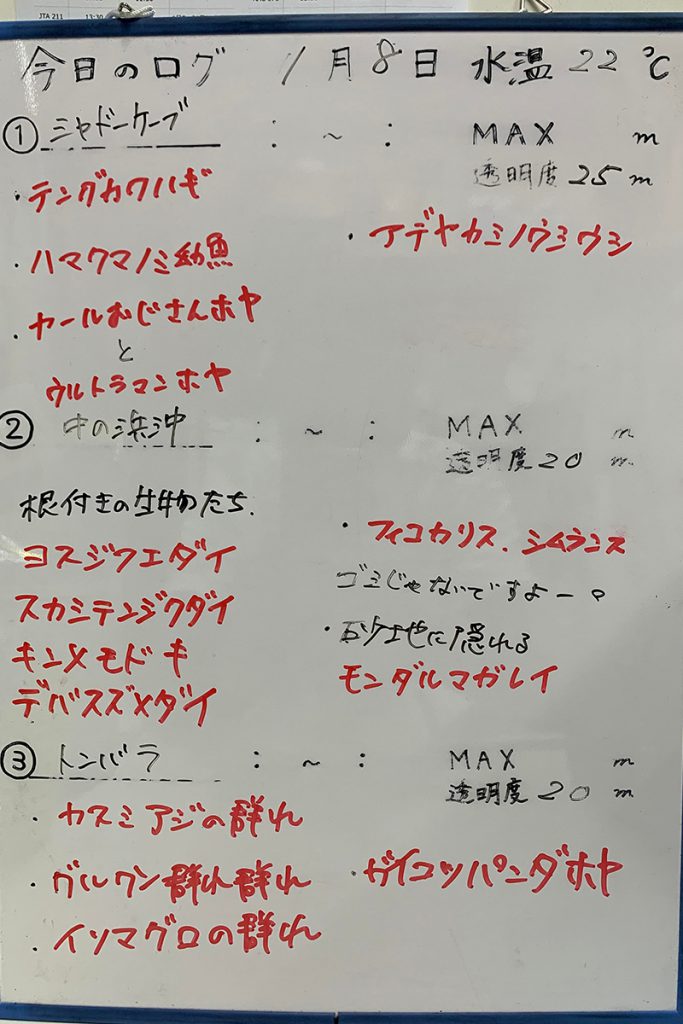 JTA 211 13:30
今日のログ 1月8日 水温 22℃
① シャドーケーブ : ~ : MAX m
透明度 25 m
・テングカワハギ
・アデヤカミノウミウシ
・ハマクマノミ幼魚
・カールおじさんホヤ
と
ウルトラマンホヤ
② 中の浜沖 : ~ : MAX m
透明度 20 m
根付きの生物たち.
ヨスジフエダイ
スカシテンジクダイ
キンメモドキ
デバスズメダイ
・フィコカリス．シムランス
ゴミじゃないですよー。
・砂地に隠れる
モンダルマガレイ
③ トンバラ : ~ : MAX m
透明度 20 m
・カスミアジの群れ
・グルクン群れ群れ
・ガイコツパンダホヤ
・イソマグロの群れ